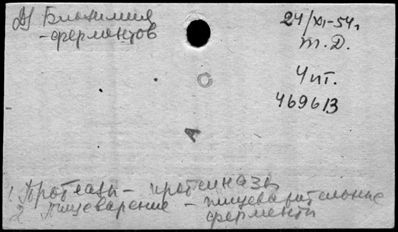 Д) Биохимия
- ферментов
24/XI-54г
т. Д.
Чит.
469613
С
А
1 Протеазы - протеиназы
2 Пищеварение - пищеварительные
ферменты